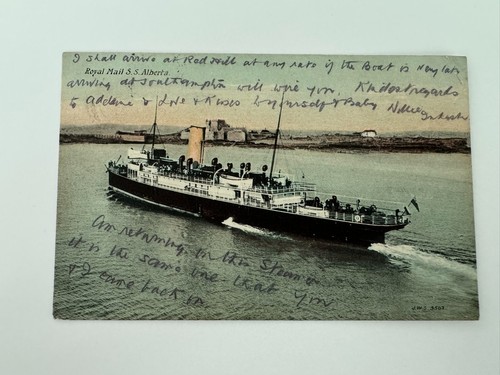 I shall arrive at Redhill at any rate if the Boat is very late
Royal Mail S.S. Alberta.
arriving at Southampton will wire you. Kindest regards
to Adelaine & Love & Kisses to yourself & Baby Nellie
Am returning in this Steamer
it is the same one that you
& I came back in
J.W.S. 3505